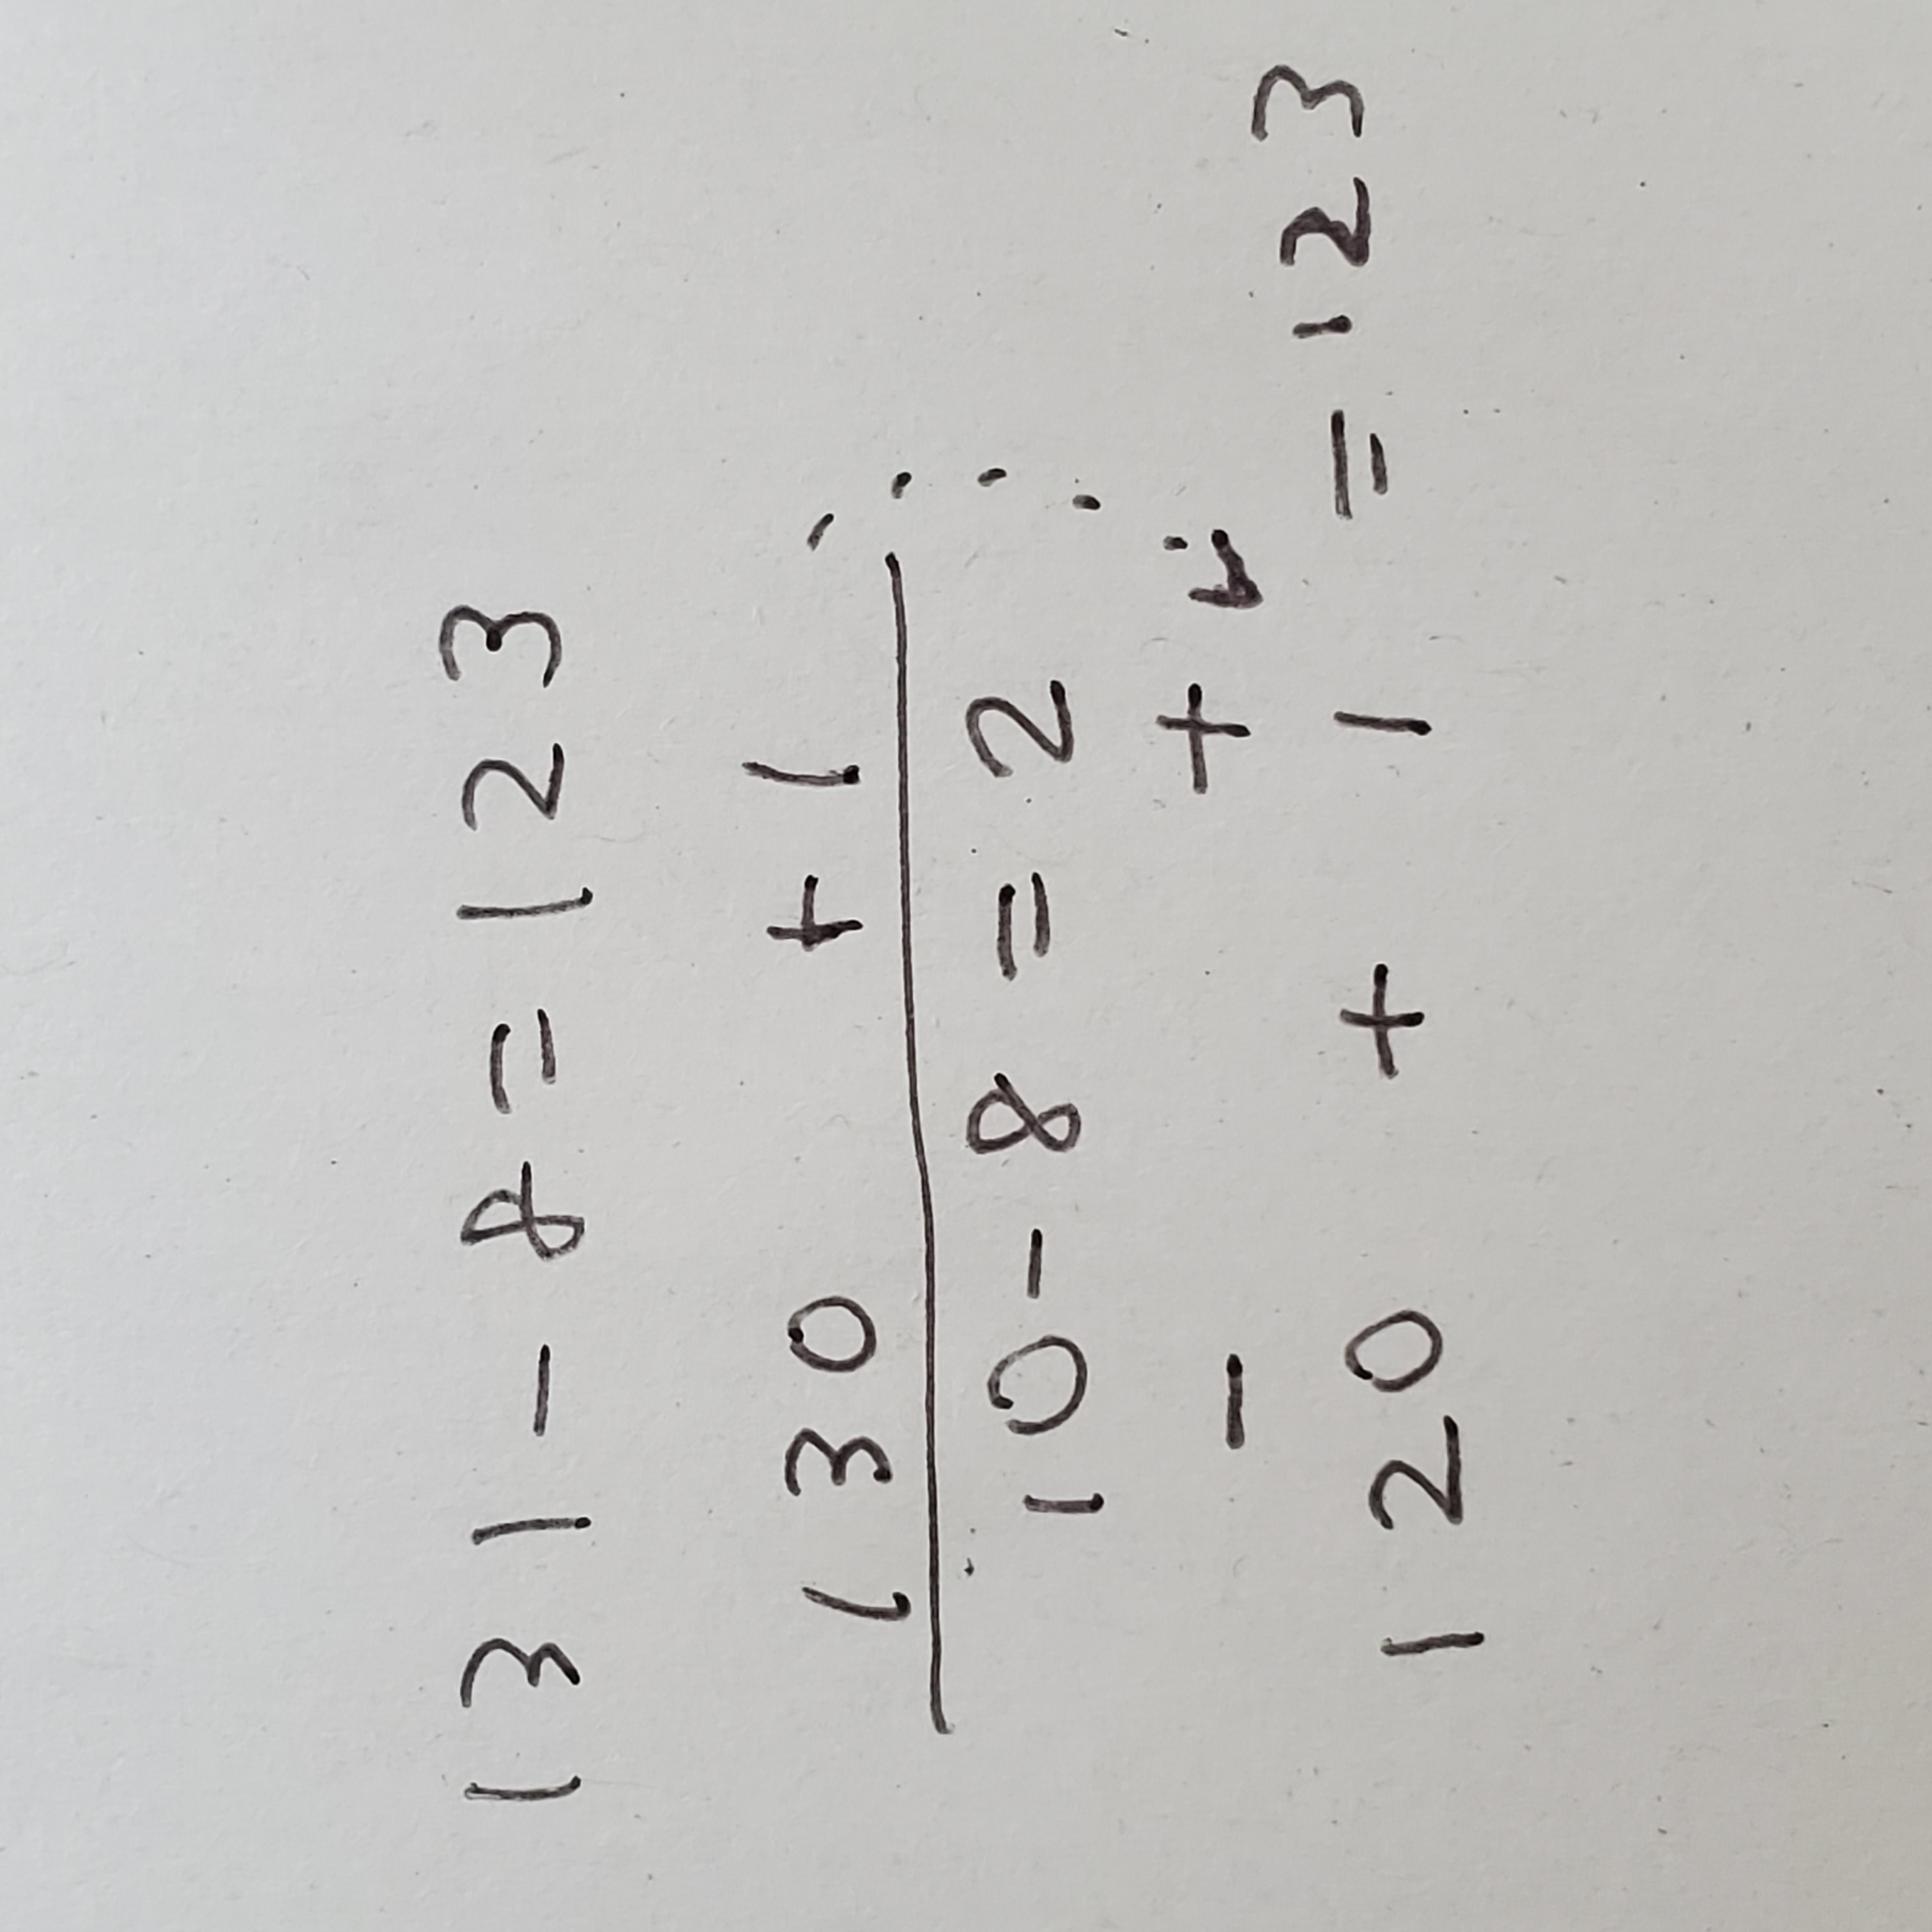 131 - 8 = 123
130 + 1
10 - 8 = 2
- +
120 + 1 = 123